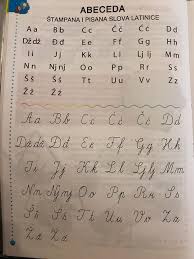 ABECEDA
ŠTAMPANA I PISANA SLOVA LATINICE
Aa Bb Cc Čč Ćć Dd
Dždž Đđ Ee Ff Gg Hh
Ii Jj Kk Ll Ljlj Mm
Nn Njnj Oo Pp Rr Ss
Šš Tt Uu Vv Zz
Žž
Aa Bb Cc Čč Ćć Dd
Dždž Đđ Ee Ff Gg Hh
Ii Jj Kk Ll Ljlj Mm
Nn Njnj Oo Pp Rr Ss
Šš Tt Uu Vv Zz
Žž